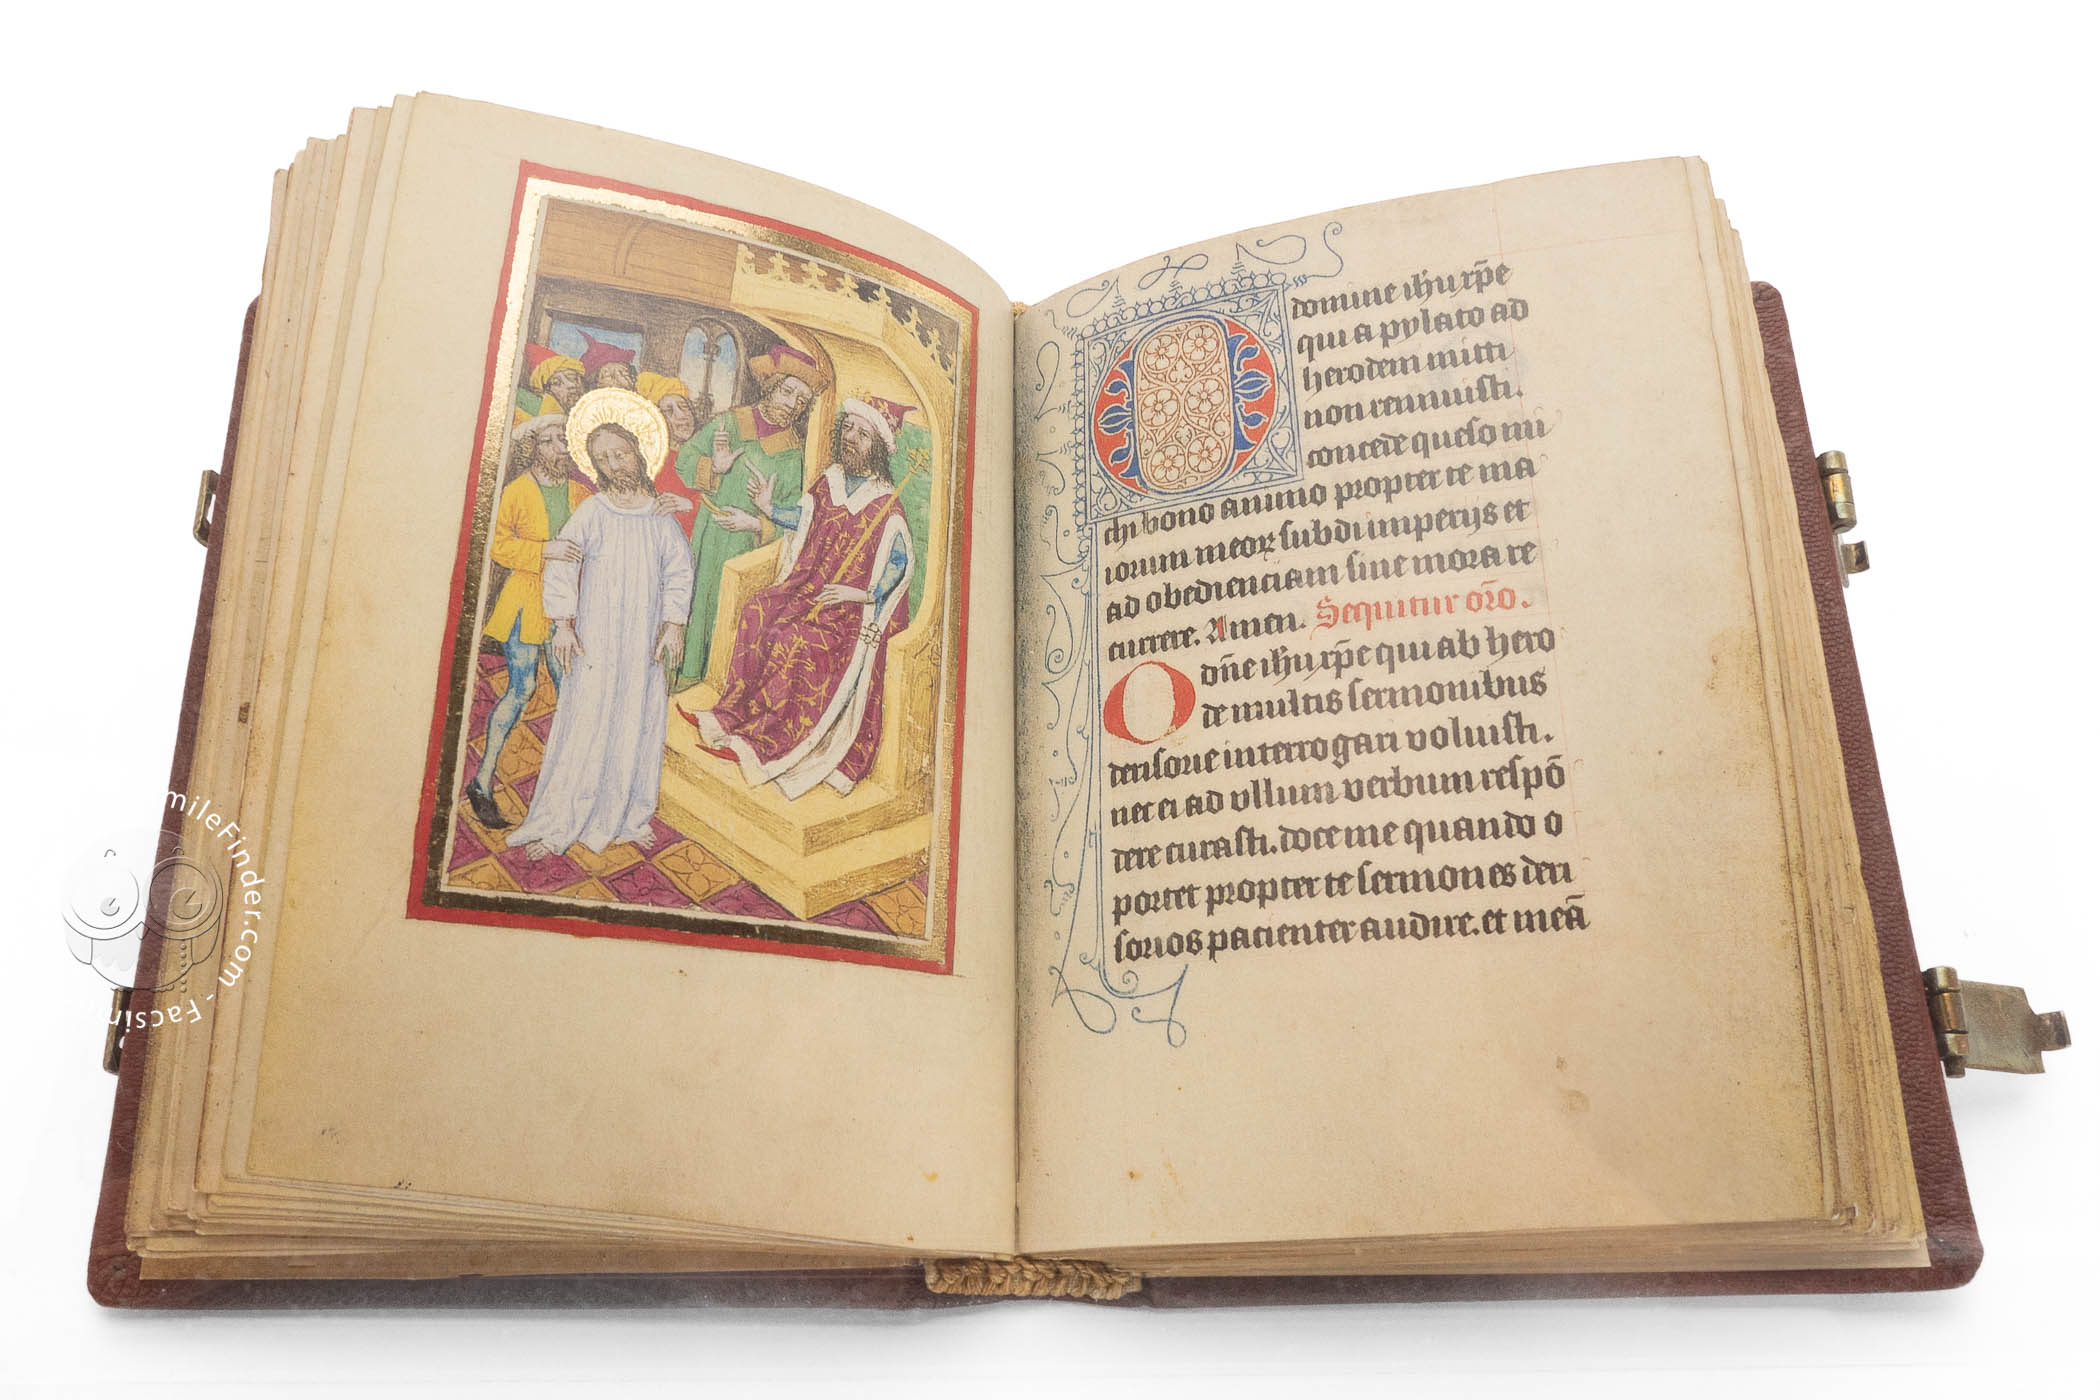 O domine ihu xpe
qui a pylato ad
herodem mitti
non rennuisti.
concede queso mi
chi bono animo propter te ma
iorum meoꝝ subdi imperijs et
ad obedienciam sine mora re
currere. Amen. Sequitur oro.
O dne ihu xpe qui ab hero
de multis sermonibus
derisorie interrogari voluisti.
nec ei ad vllum verbum respō
dere curasti. doce me quando o
portet propter te sermones deri
sorios pacienter audire. et meā
milefinder.com · Facsim